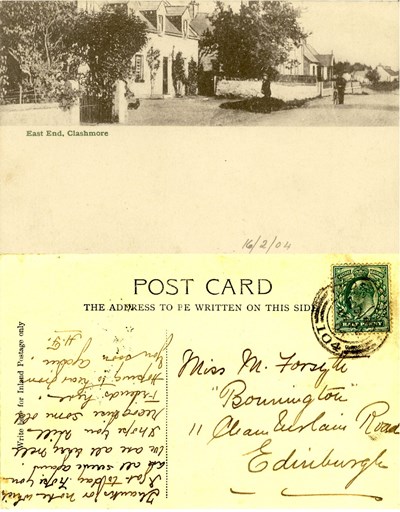 East End, Clashmore
16/2/04
POST CARD
THE ADDRESS TO BE WRITTEN ON THIS SIDE
HALF PENNY
104
Write for Inland Postage only
Miss M. Forsyth
"Bonnington"
11 Road
Edinburgh
Thanks for note which
I got today. Hope you
are all well again.
We are all very well
I hope you will
recognise some old
friends here.
Hoping to hear from
you soon again.